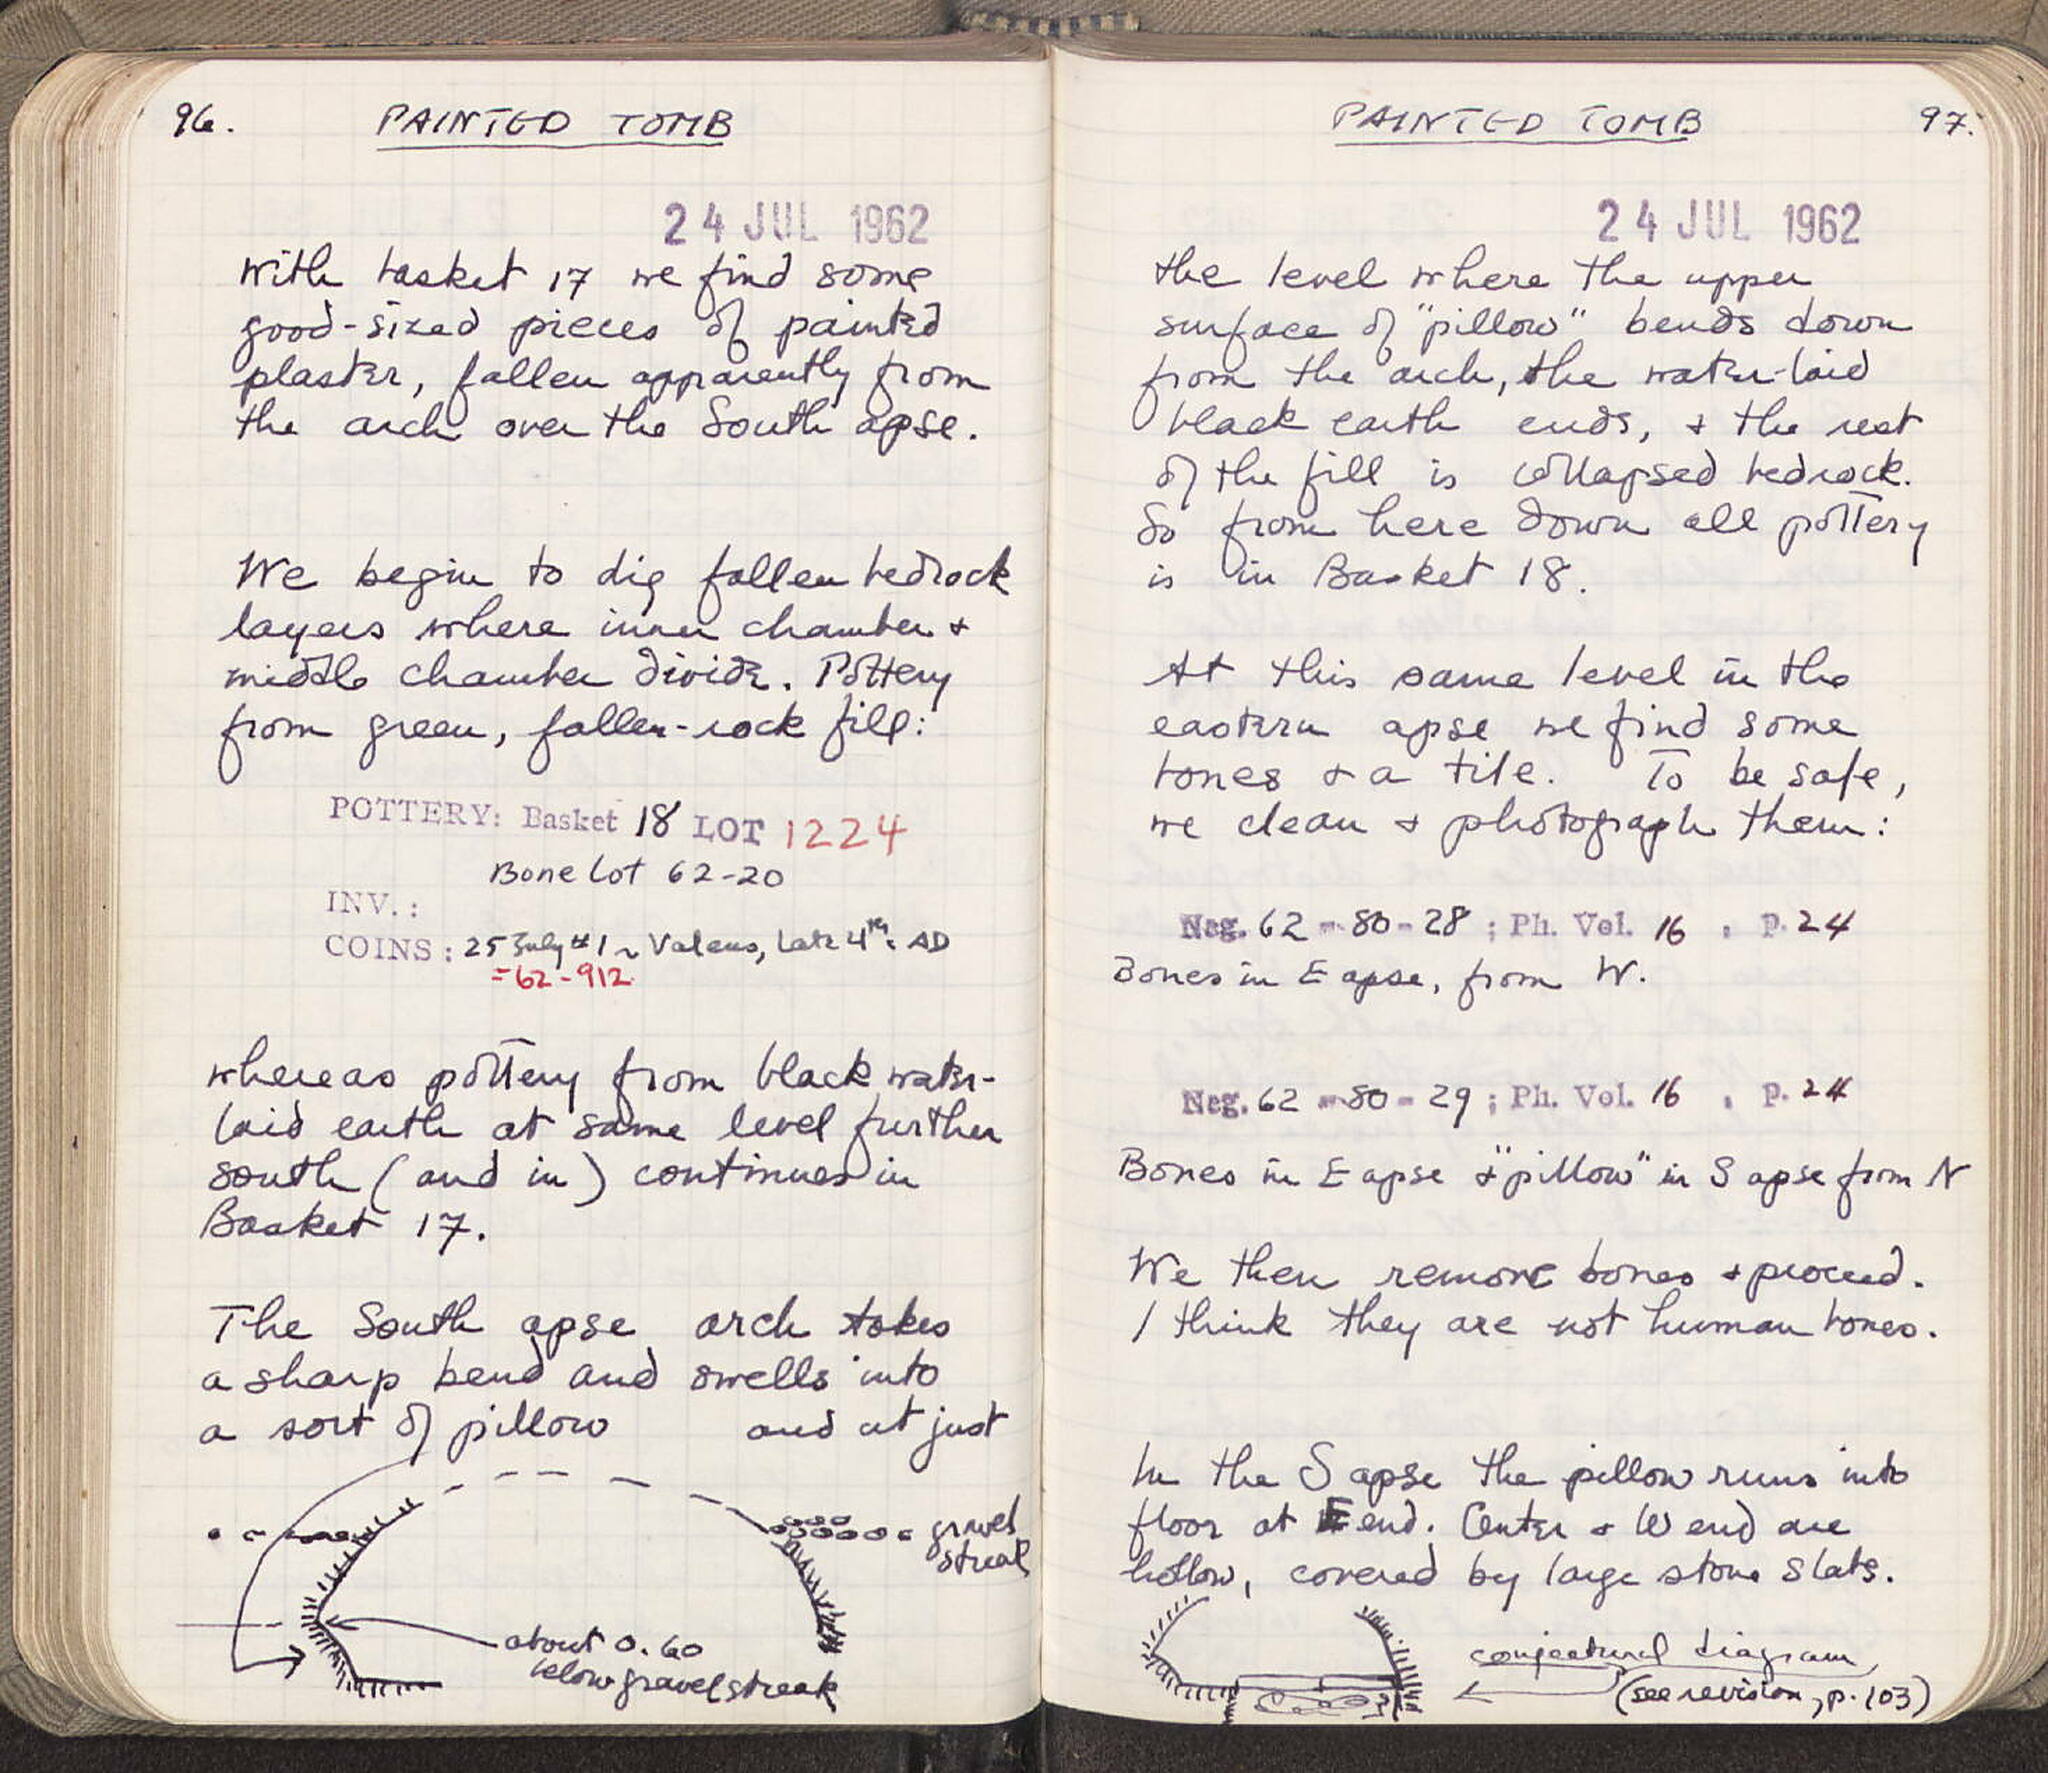 96.
PAINTED TOMB
24 JUL 1962
With basket 17 we find some
good-sized pieces of painted
plaster, fallen apparently from
the arch over the South apse.
We begin to dig fallen bedrock
layers where inner chamber +
middle chamber divide. Pottery
from green, fallen-rock fill:
POTTERY: Basket 18 LOT 1224
Bone Lot 62-20
INV.:
COINS: 25 July #1 ~ Valens, Late 4th c. AD
= 62-912
whereas pottery from black water-
laid earth at same level further
south (and in) continues in
Basket 17.
The South apse arch takes
a sharp bend and swells into
a sort of pillow and at just
gravel
streak
about 0.60
below gravel streak
PAINTED TOMB
97.
24 JUL 1962
the level where the upper
surface of "pillow" bends down
from the arch, the water-laid
black earth ends, + the rest
of the fill is collapsed bedrock.
So from here down all pottery
is in Basket 18.
At this same level in the
eastern apse we find some
bones + a tile. To be safe,
we clean + photograph them:
Neg. 62-80-28; Ph. Vol. 16, p. 24
Bones in E apse, from W.
Neg. 62-80-29; Ph. Vol. 16, p. 24
Bones in E apse + "pillow" in S apse from N
We then remove bones + proceed.
I think they are not human bones.
In the S apse the pillow runs into
floor at E end. Center + W end are
hollow, covered by large stone slabs.
conjectural diagram
(see revision, p. 103)